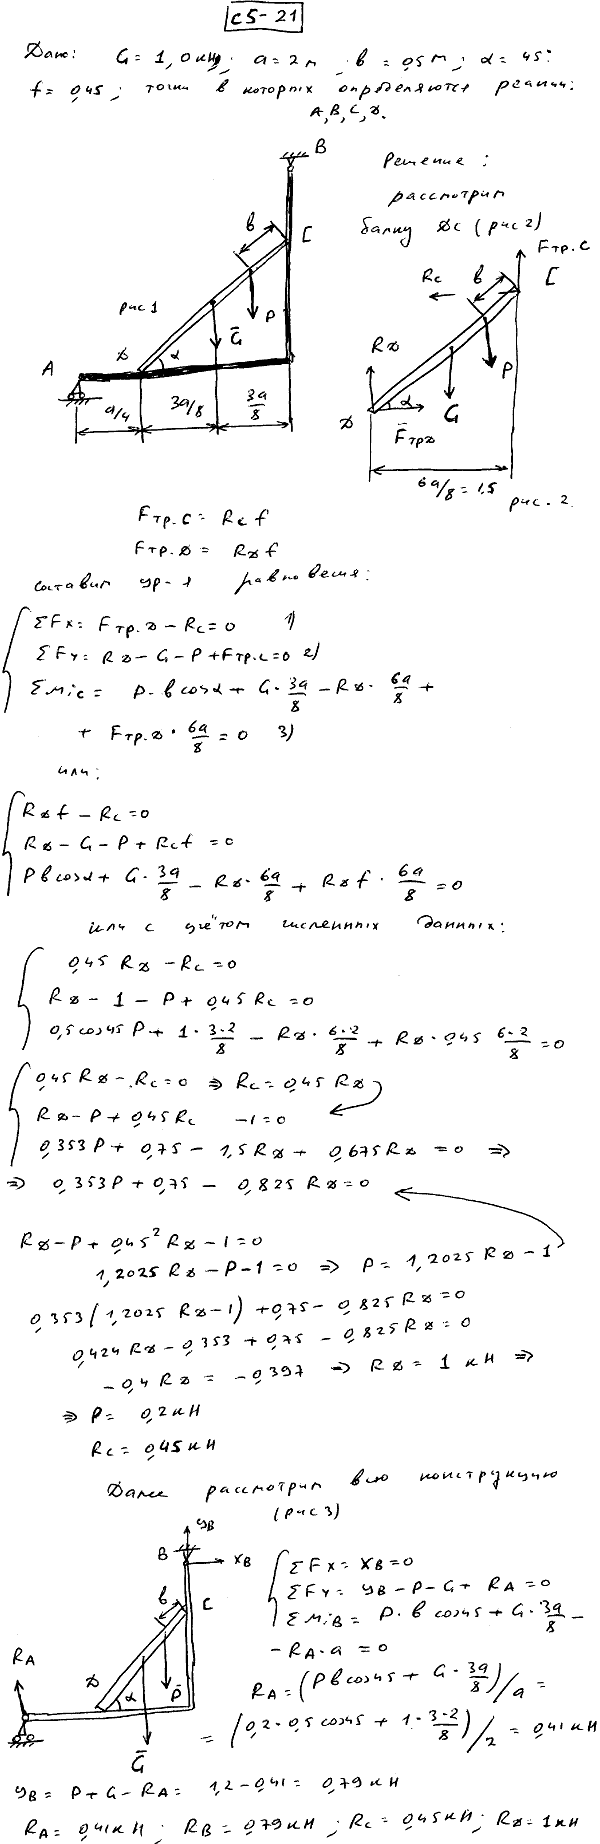 С5-21
Дано: G = 1,0 кН; a = 2 м; в = 0,5 м; α = 45°.
f = 0,45; точки в которых определяются реакции:
A, B, C, D.
B
Решение:
рассмотрим
балку DC (рис 2)
C
в
рис 1
P
G̅
D
α
A
a/4
3a/8
3a/8
Fтр.C
C
Rc
в
RD
P
G
D
α
F̅трD
6a/8 = 1,5
рис. 2.
Fтр.C = Rc f
Fтр.D = RD f
составим ур-я равновесия:
ΣFx = Fтр.D − Rc = 0 1)
ΣFy = RD − G − P + Fтр.C = 0 2)
ΣMic = P·в cosα + G·3a/8 − RD·6a/8 +
+ Fтр.D·6a/8 = 0 3)
или:
RD f − Rc = 0
RD − G − P + Rc f = 0
Pв cosα + G·3a/8 − RD·6a/8 + RD f·6a/8 = 0
или с учётом численных данных:
0,45 RD − Rc = 0
RD − 1 − P + 0,45 Rc = 0
0,5 cos45 P + 1·3·2/8 − RD·6·2/8 + RD·0,45 6·2/8 = 0
0,45 RD − Rc = 0 ⇒ Rc = 0,45 RD
RD − P + 0,45 Rc − 1 = 0
0,353 P + 0,75 − 1,5 RD + 0,675 RD = 0 ⇒
⇒ 0,353 P + 0,75 − 0,825 RD = 0
RD − P + 0,45² RD − 1 = 0
1,2025 RD − P − 1 = 0 ⇒ P = 1,2025 RD − 1
0,353 (1,2025 RD − 1) + 0,75 − 0,825 RD = 0
0,424 RD − 0,353 + 0,75 − 0,825 RD = 0
− 0,4 RD = − 0,397 ⇒ RD = 1 кН ⇒
⇒ P = 0,2 кН
Rc = 0,45 кН
Далее рассмотрим всю конструкцию
(рис 3)
yB
B
xB
в
C
RA
D
α
P̅
G̅
ΣFx = XB = 0
ΣFy = yB − P − G + RA = 0
ΣMiB = P·в cos45 + G·3a/8 −
− RA·a = 0
RA = (Pв cos45 + G·3a/8)/a =
= (0,2·0,5 cos45 + 1·3·2/8)/2 = 0,41 кН
yB = P + G − RA = 1,2 − 0,41 = 0,79 кН
RA = 0,41 кН; RB = 0,79 кН; Rc = 0,45 кН; RD = 1 кН